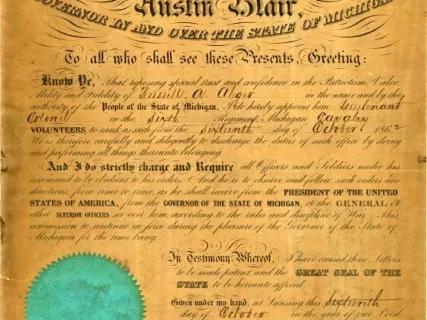 Austin Blair,
GOVERNOR IN AND OVER THE STATE OF MICHIGAN
To all who shall see these Presents, Greeting:
Know Ye, That reposing special trust and confidence in the Patriotism, Valor,
Ability and Fidelity of Russell A. Alger in the name and by the
authority of the People of the State of Michigan, I do hereby appoint him Lieutenant
Colonel in the Sixth Regiment Michigan Cavalry
VOLUNTEERS to rank as such from the Sixteenth day of October 1862
He is therefore carefully and diligently to discharge the duties of such office by doing
and performing all things thereto belonging.
And I do strictly charge and Require all Officers and Soldiers under his
command to be obedient to his orders: And he is to observe and follow such orders and
directions, from time to time, as he shall receive from the PRESIDENT OF THE UNITED
STATES OF AMERICA, from the GOVERNOR OF THE STATE OF MICHIGAN, or the GENERAL or
other SUPERIOR OFFICERS set over him, according to the rules and discipline of War. This
commission to continue in force during the pleasure of the Governor of the State of
Michigan for the time being.
In Testimony Whereof, I have caused these Letters
to be made patent and the GREAT SEAL OF THE
STATE to be hereunto affixed.
Given under my hand, at Lansing this Sixteenth
day of October in the year of our Lord